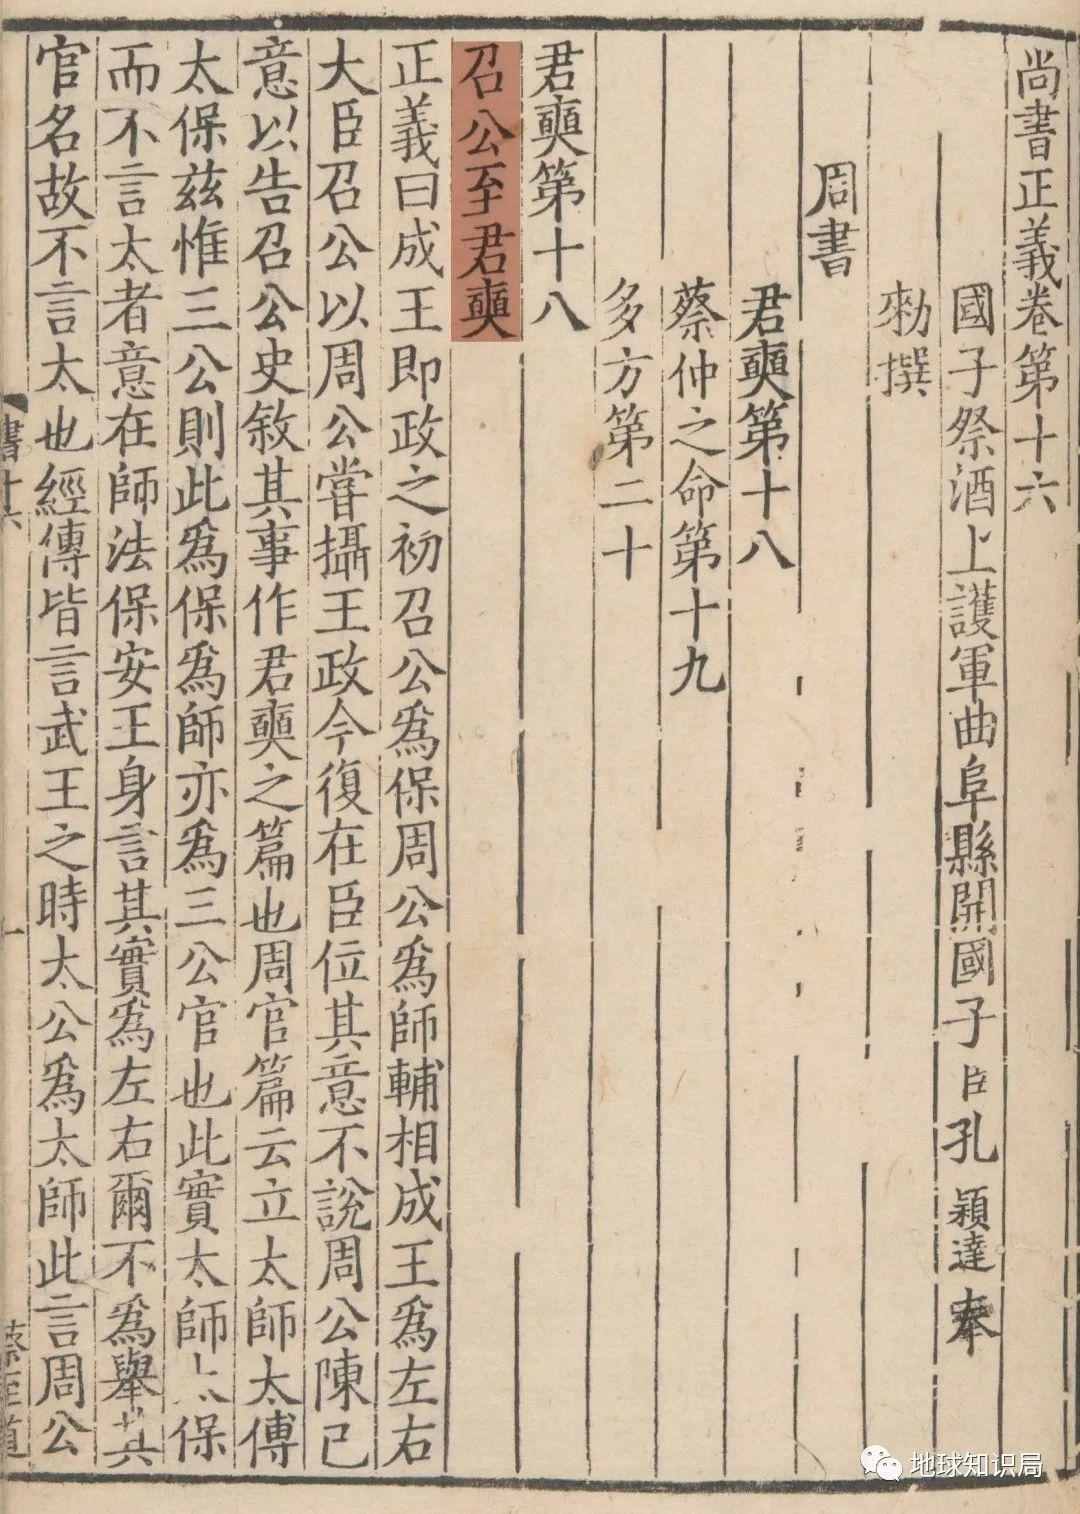 尚書正義卷第十六
國子祭酒上護軍曲阜縣開國子臣孔穎達奉
勑撰
周書
君奭第十八
蔡仲之命第十九
多方第二十
君奭第十八
召公至君奭
正義曰成王即政之初召公爲保周公爲師輔相成王爲左右
大臣召公以周公嘗攝王政今復在臣位其意不說周公陳已
意以告召公史敘其事作君奭之篇也周官篇云立太師太傅
太保兹惟三公則此爲保爲師亦爲三公官也此實太師太保
而不言太者意在師法保安王身言其實爲左右爾不爲舉其
官名故不言太也經傳皆言武王之時太公爲太師此言周公
書十六
地球知识局